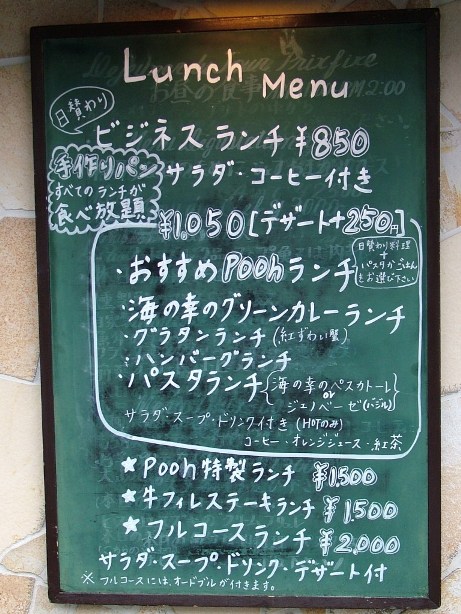 Lunch Menu
日替わり
ビジネスランチ ¥850
手作りパン
すべてのランチが
食べ放題
サラダ・コーヒー付き
¥1,050[デザート+250円]
・おすすめPoohランチ
日替わり料理
+
パスタかごはん
をお選び下さい
・海の幸のグリーンカレーランチ
・グラタンランチ(紅ずわい蟹)
・ハンバーグランチ
・パスタランチ
海の幸のペスカトーレ
or
ジェノベーゼ(バジル)
サラダ・スープ・ドリンク付き(HOTのみ)
コーヒー・オレンジジュース・紅茶
★Pooh特製ランチ ¥1,500
★牛フィレステーキランチ ¥1,500
★フルコースランチ ¥2,000
サラダ・スープ・ドリンク・デザート付
※フルコースには、オードブルが付きます。